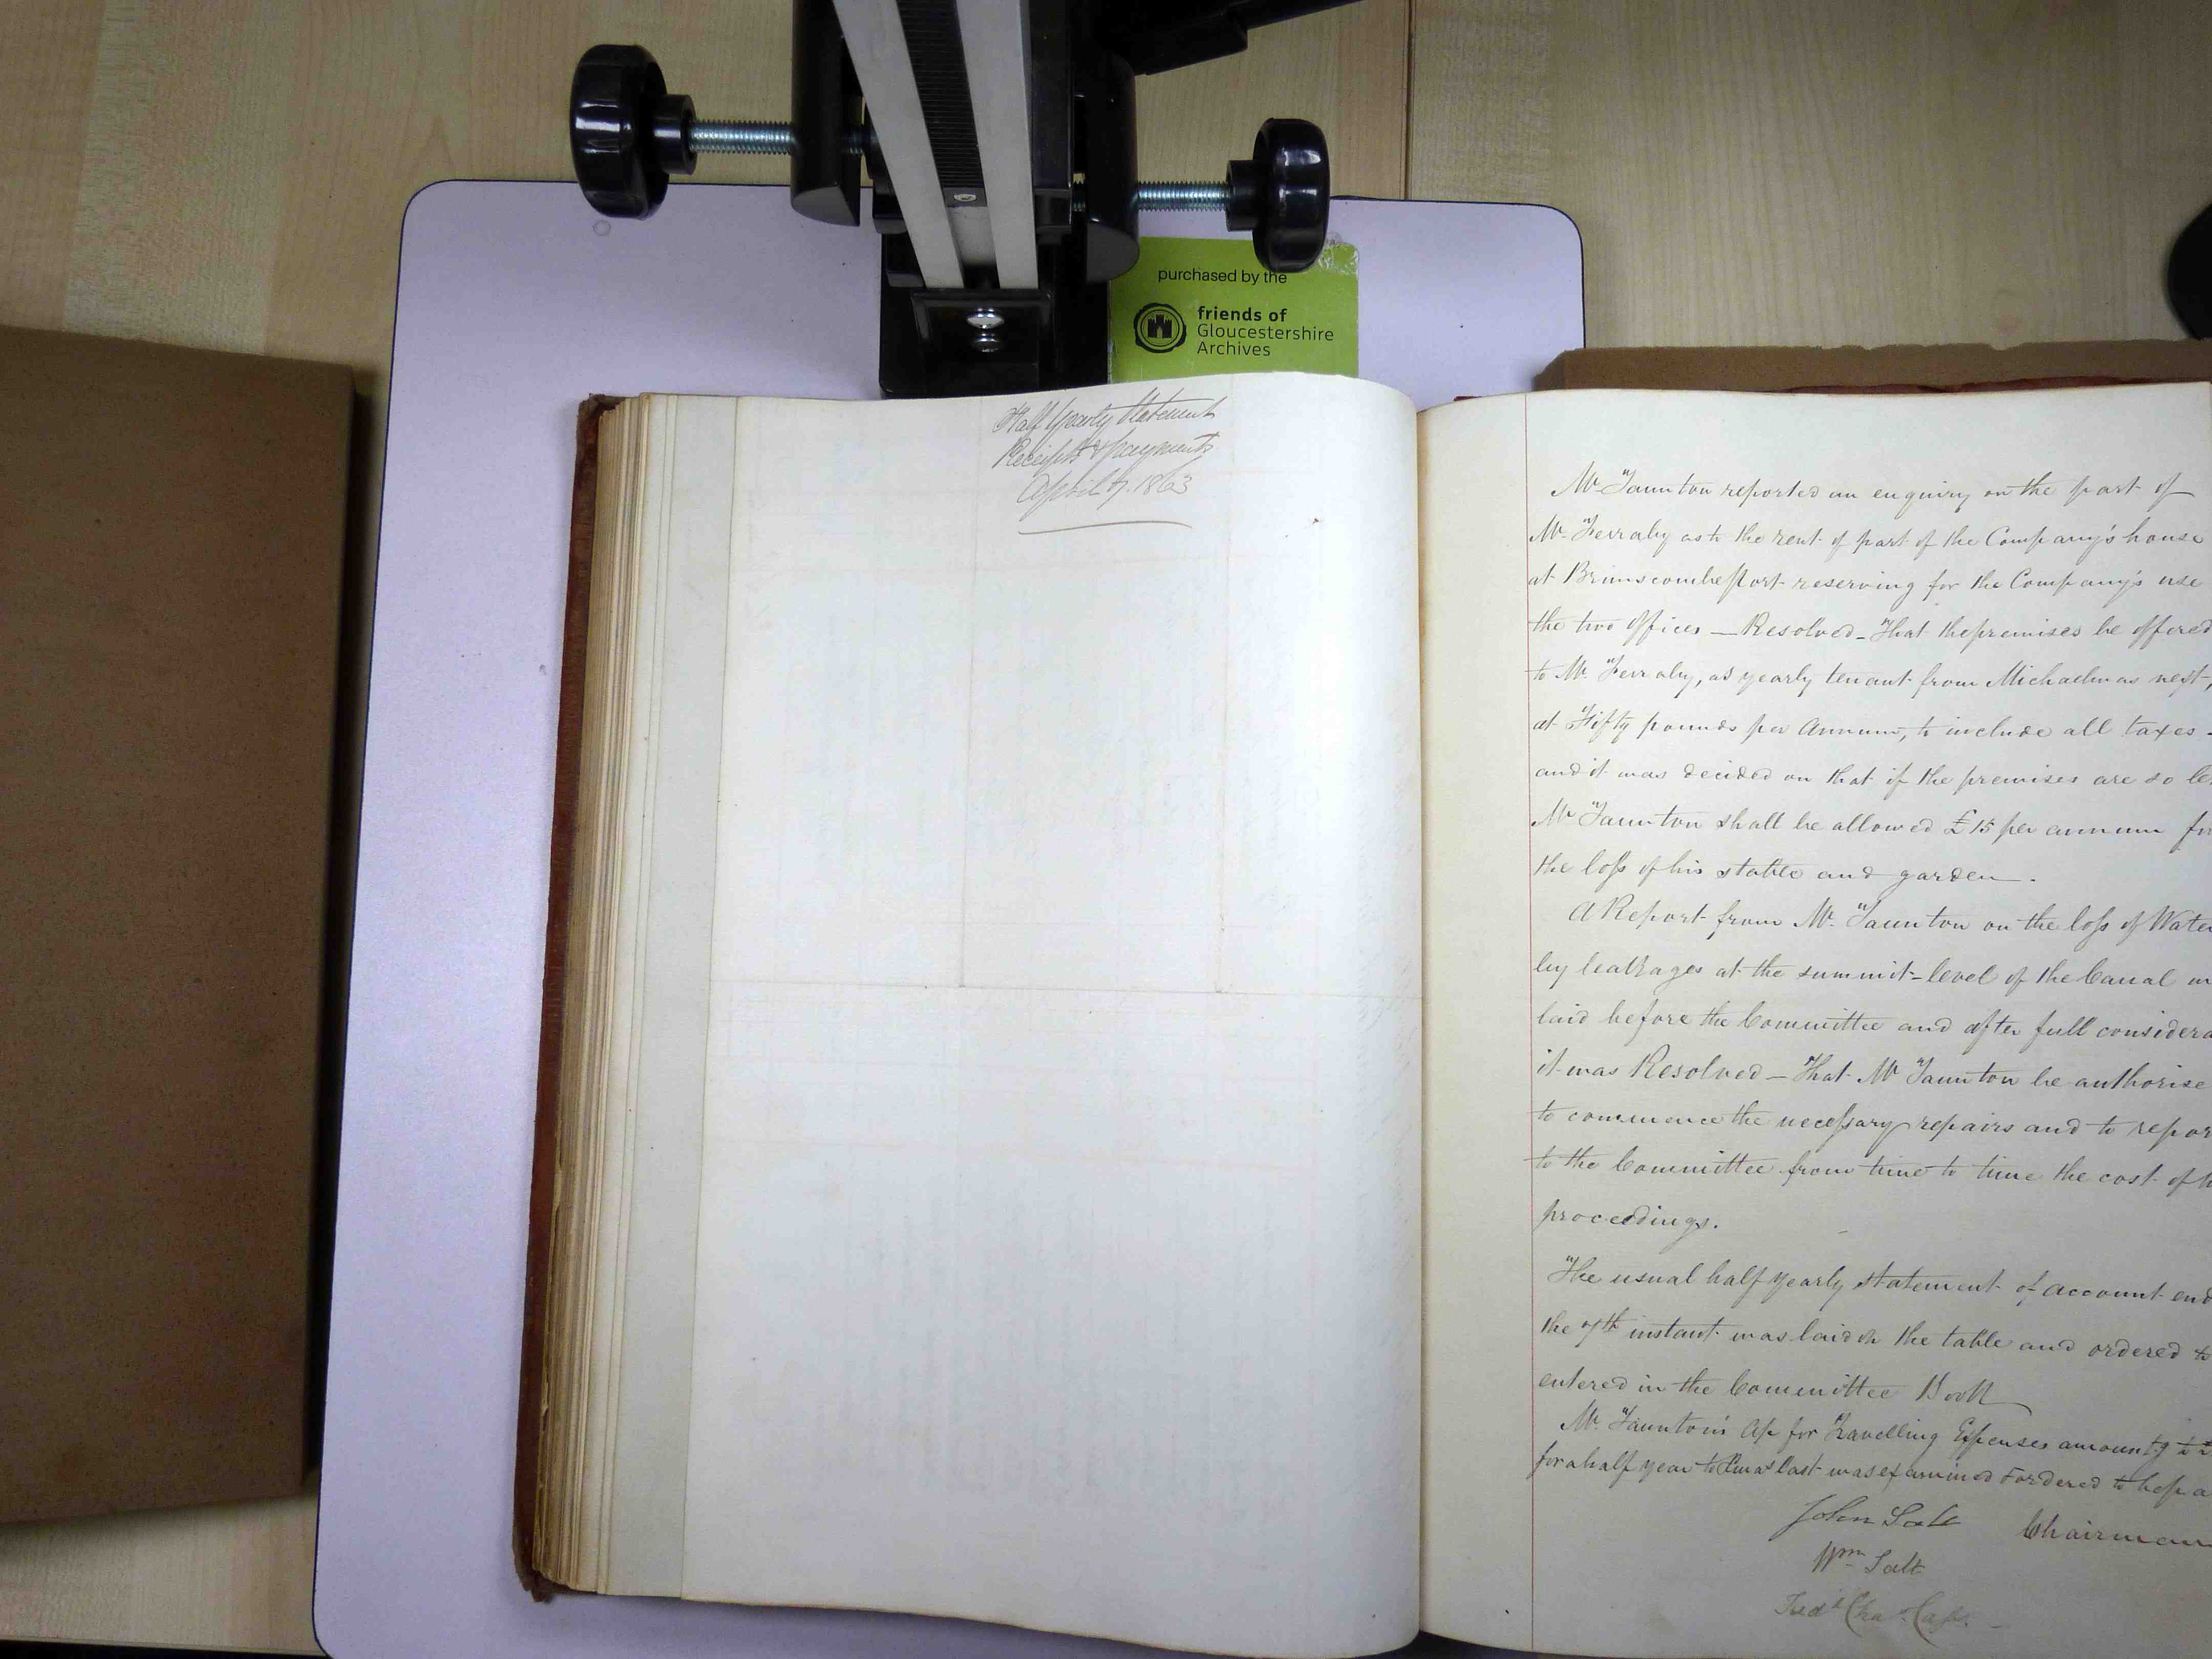 purchased by the
friends of
Gloucestershire
Archives
Half Yearly Statement
Receipts & payments
April 7. 1863
Mr. Taunton reported an enquiry on the part of
Mr. Ferraby as to the rent of part of the Company's house
at Brimscombe Port reserving for the Company's use
the two offices — Resolved — That the premises be offered
to Mr. Ferraby, as yearly tenant from Michaelmas next,
at Fifty pounds per Annum, to include all taxes -
and it was decided on that if the premises are so le
Mr Taunton shall be allowed £15 per annum fo
the loss of his stable and garden.
A Report from Mr. Taunton on the loss of Water
by leakages at the summit-level of the Canal w
laid before the Committee and after full considera
it was Resolved — That Mr Taunton be authorise
to commence the necessary repairs and to repor
to the Committee from time to time the cost of
proceedings.
The usual half yearly statement of account end
the 7th instant was laid on the table and ordered to
entered in the Committee Book
Mr. Taunton's for Travelling Expenses amountg to
for a half year to Xmas last was examined & ordered to be pa
John Salt Chairman
Wm Salt
Fredk Chas